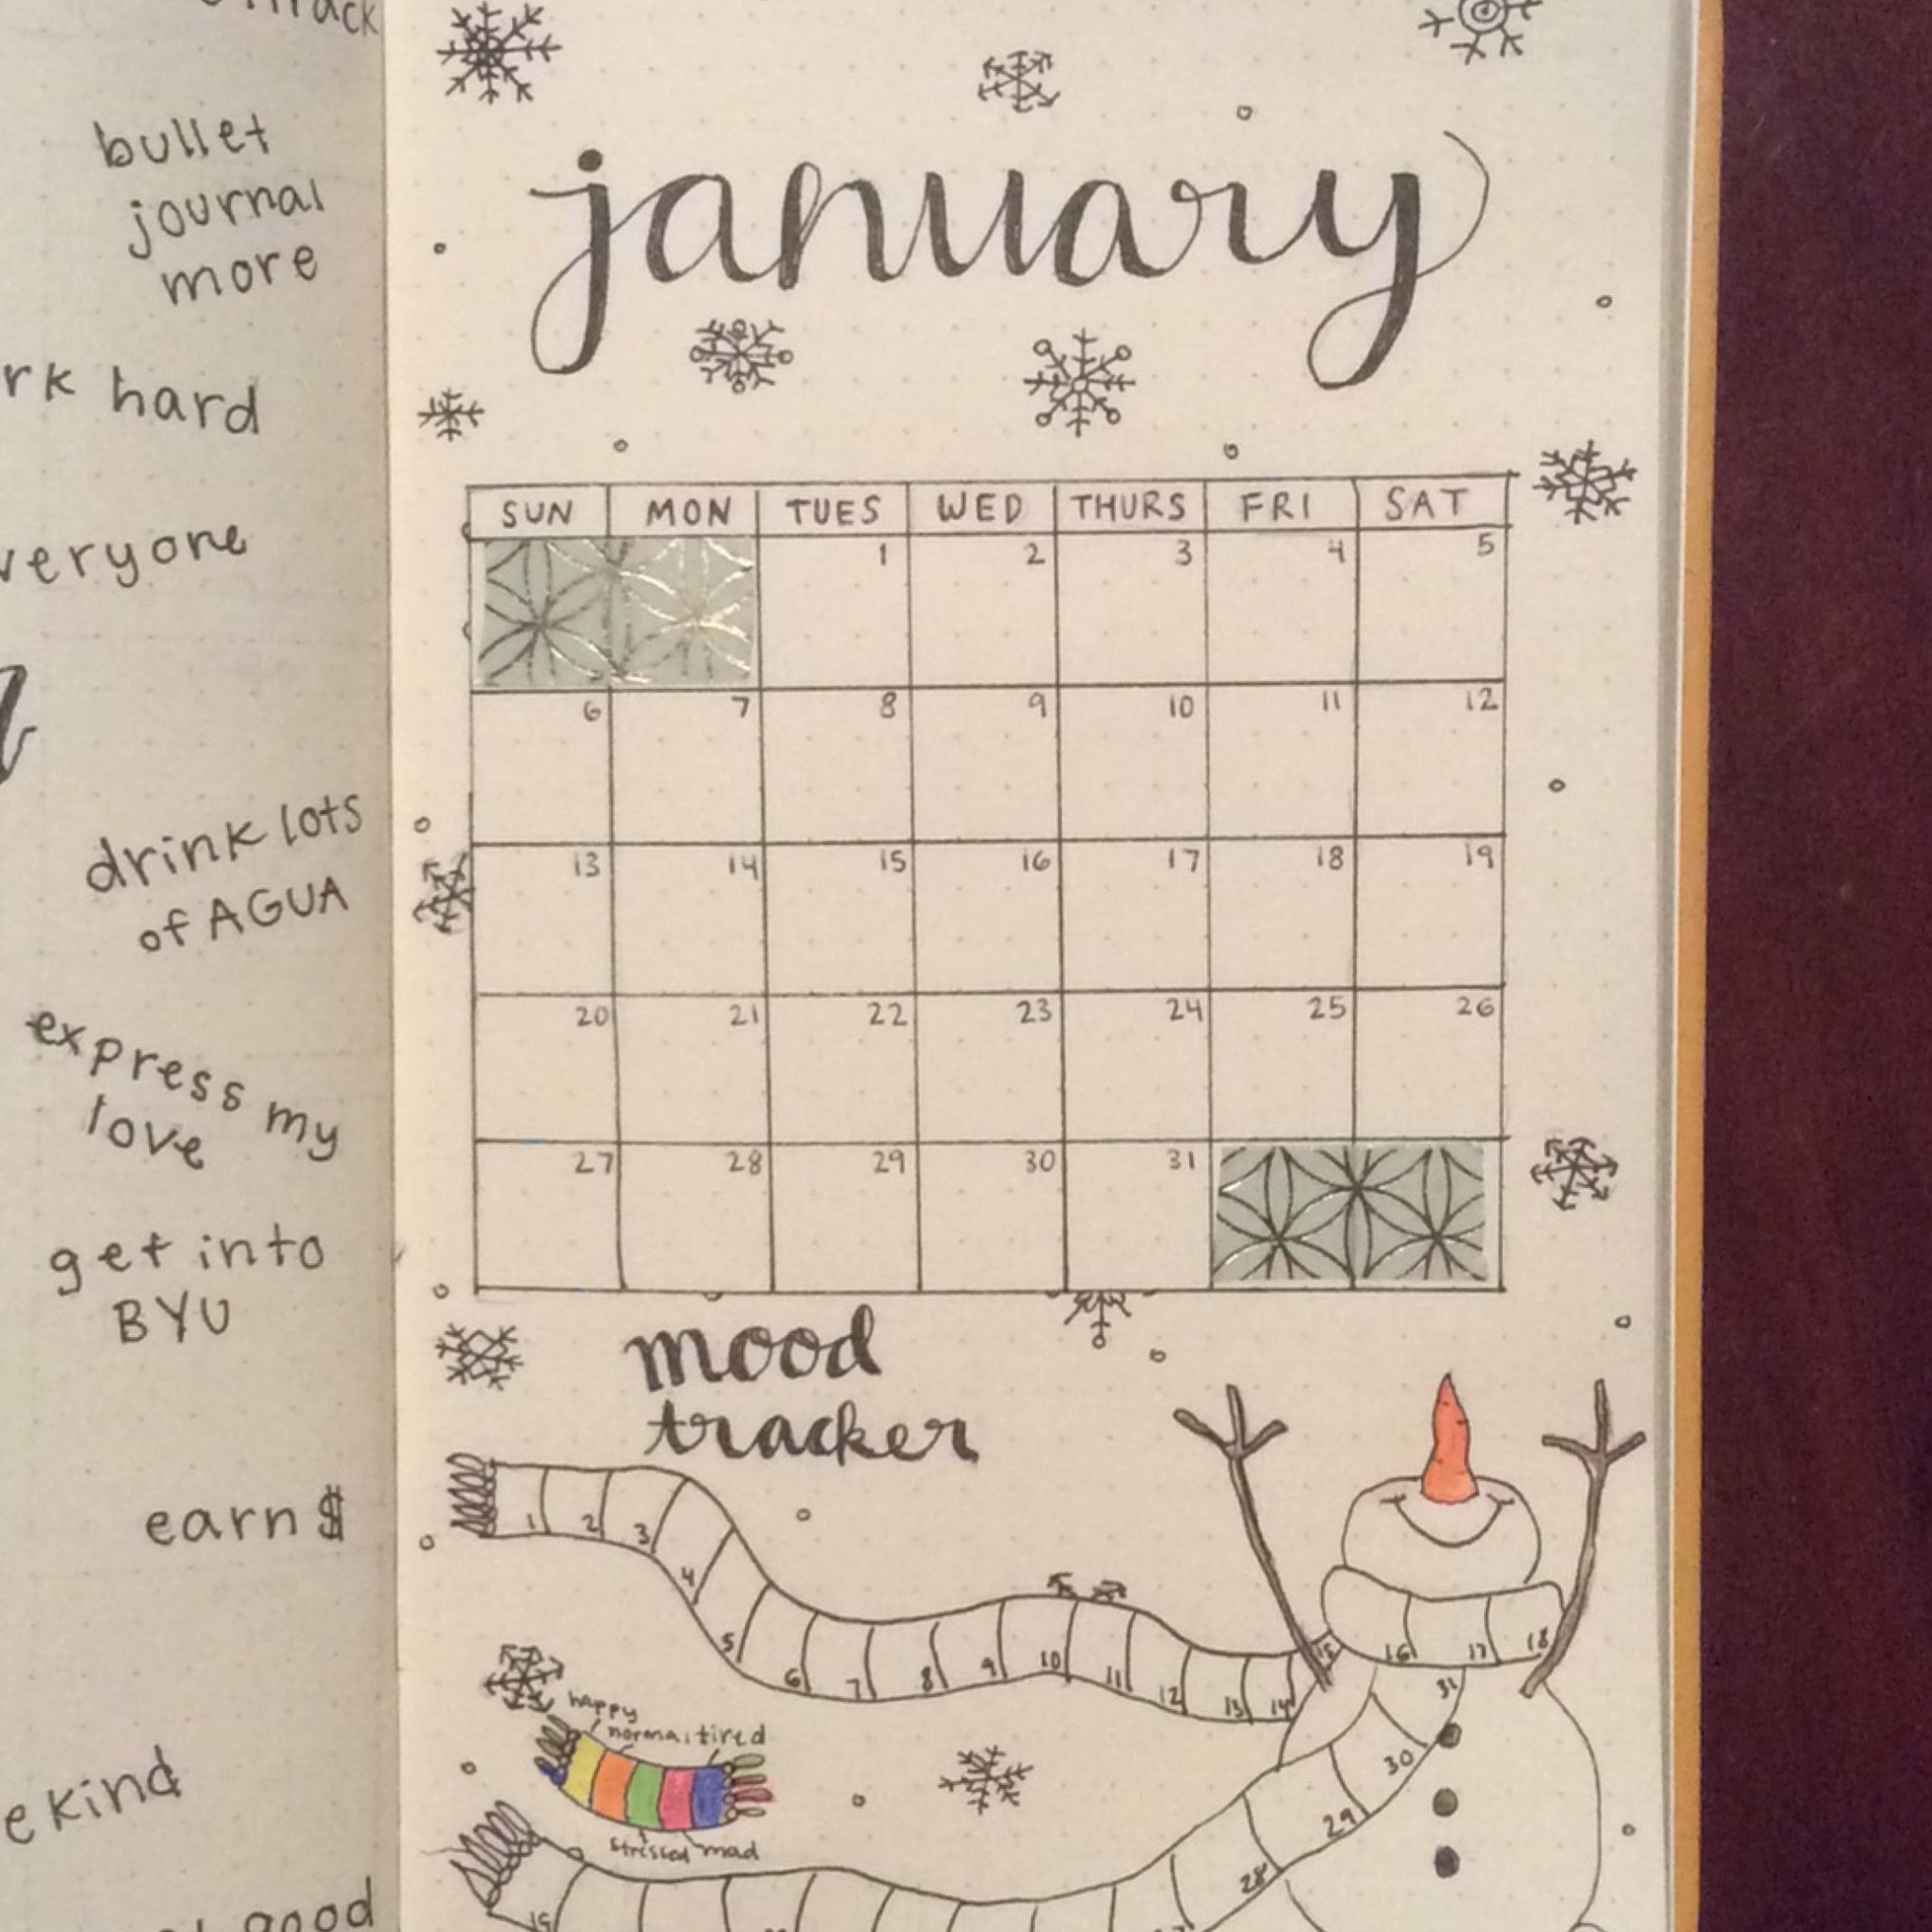 bullet
journal
more
hard
drink lots
of AGUA
express my
love
get into
BYU
earn $
kind
good
january
SUN MON TUES WED THURS FRI SAT
1 2 3 4 5
6 7 8 9 10 11 12
13 14 15 16 17 18 19
20 21 22 23 24 25 26
27 28 29 30 31
mood
tracker
1 2 3 4 5 6 7 8 9 10 11 12 13 14 15 16 17 18
31
30
29
28
happy
normal tired
stressed mad
19